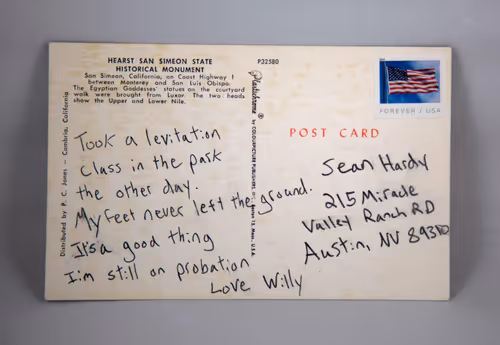 HEARST SAN SIMEON STATE
HISTORICAL MONUMENT
San Simeon, California, on Coast Highway 1
between Monterey and San Luis Obispo.
The Egyptian Goddesses' statues on the courtyard
walk were brought from Luxor. The two heads
show the Upper and Lower Nile.
P32580
Distributed by P. C. Jones - Cambria, California
Plastichrome ® by COLOURPICTURE PUBLISHERS, INC., Boston 15, Mass. U.S.A.
FOREVER / USA
POST CARD
Took a levitation
class in the park
the other day.
My feet never left the ground.
It's a good thing
I'm still on probation
Love Willy
Sean Hardy
215 Miracle
Valley Ranch RD
Austin, NV 89310